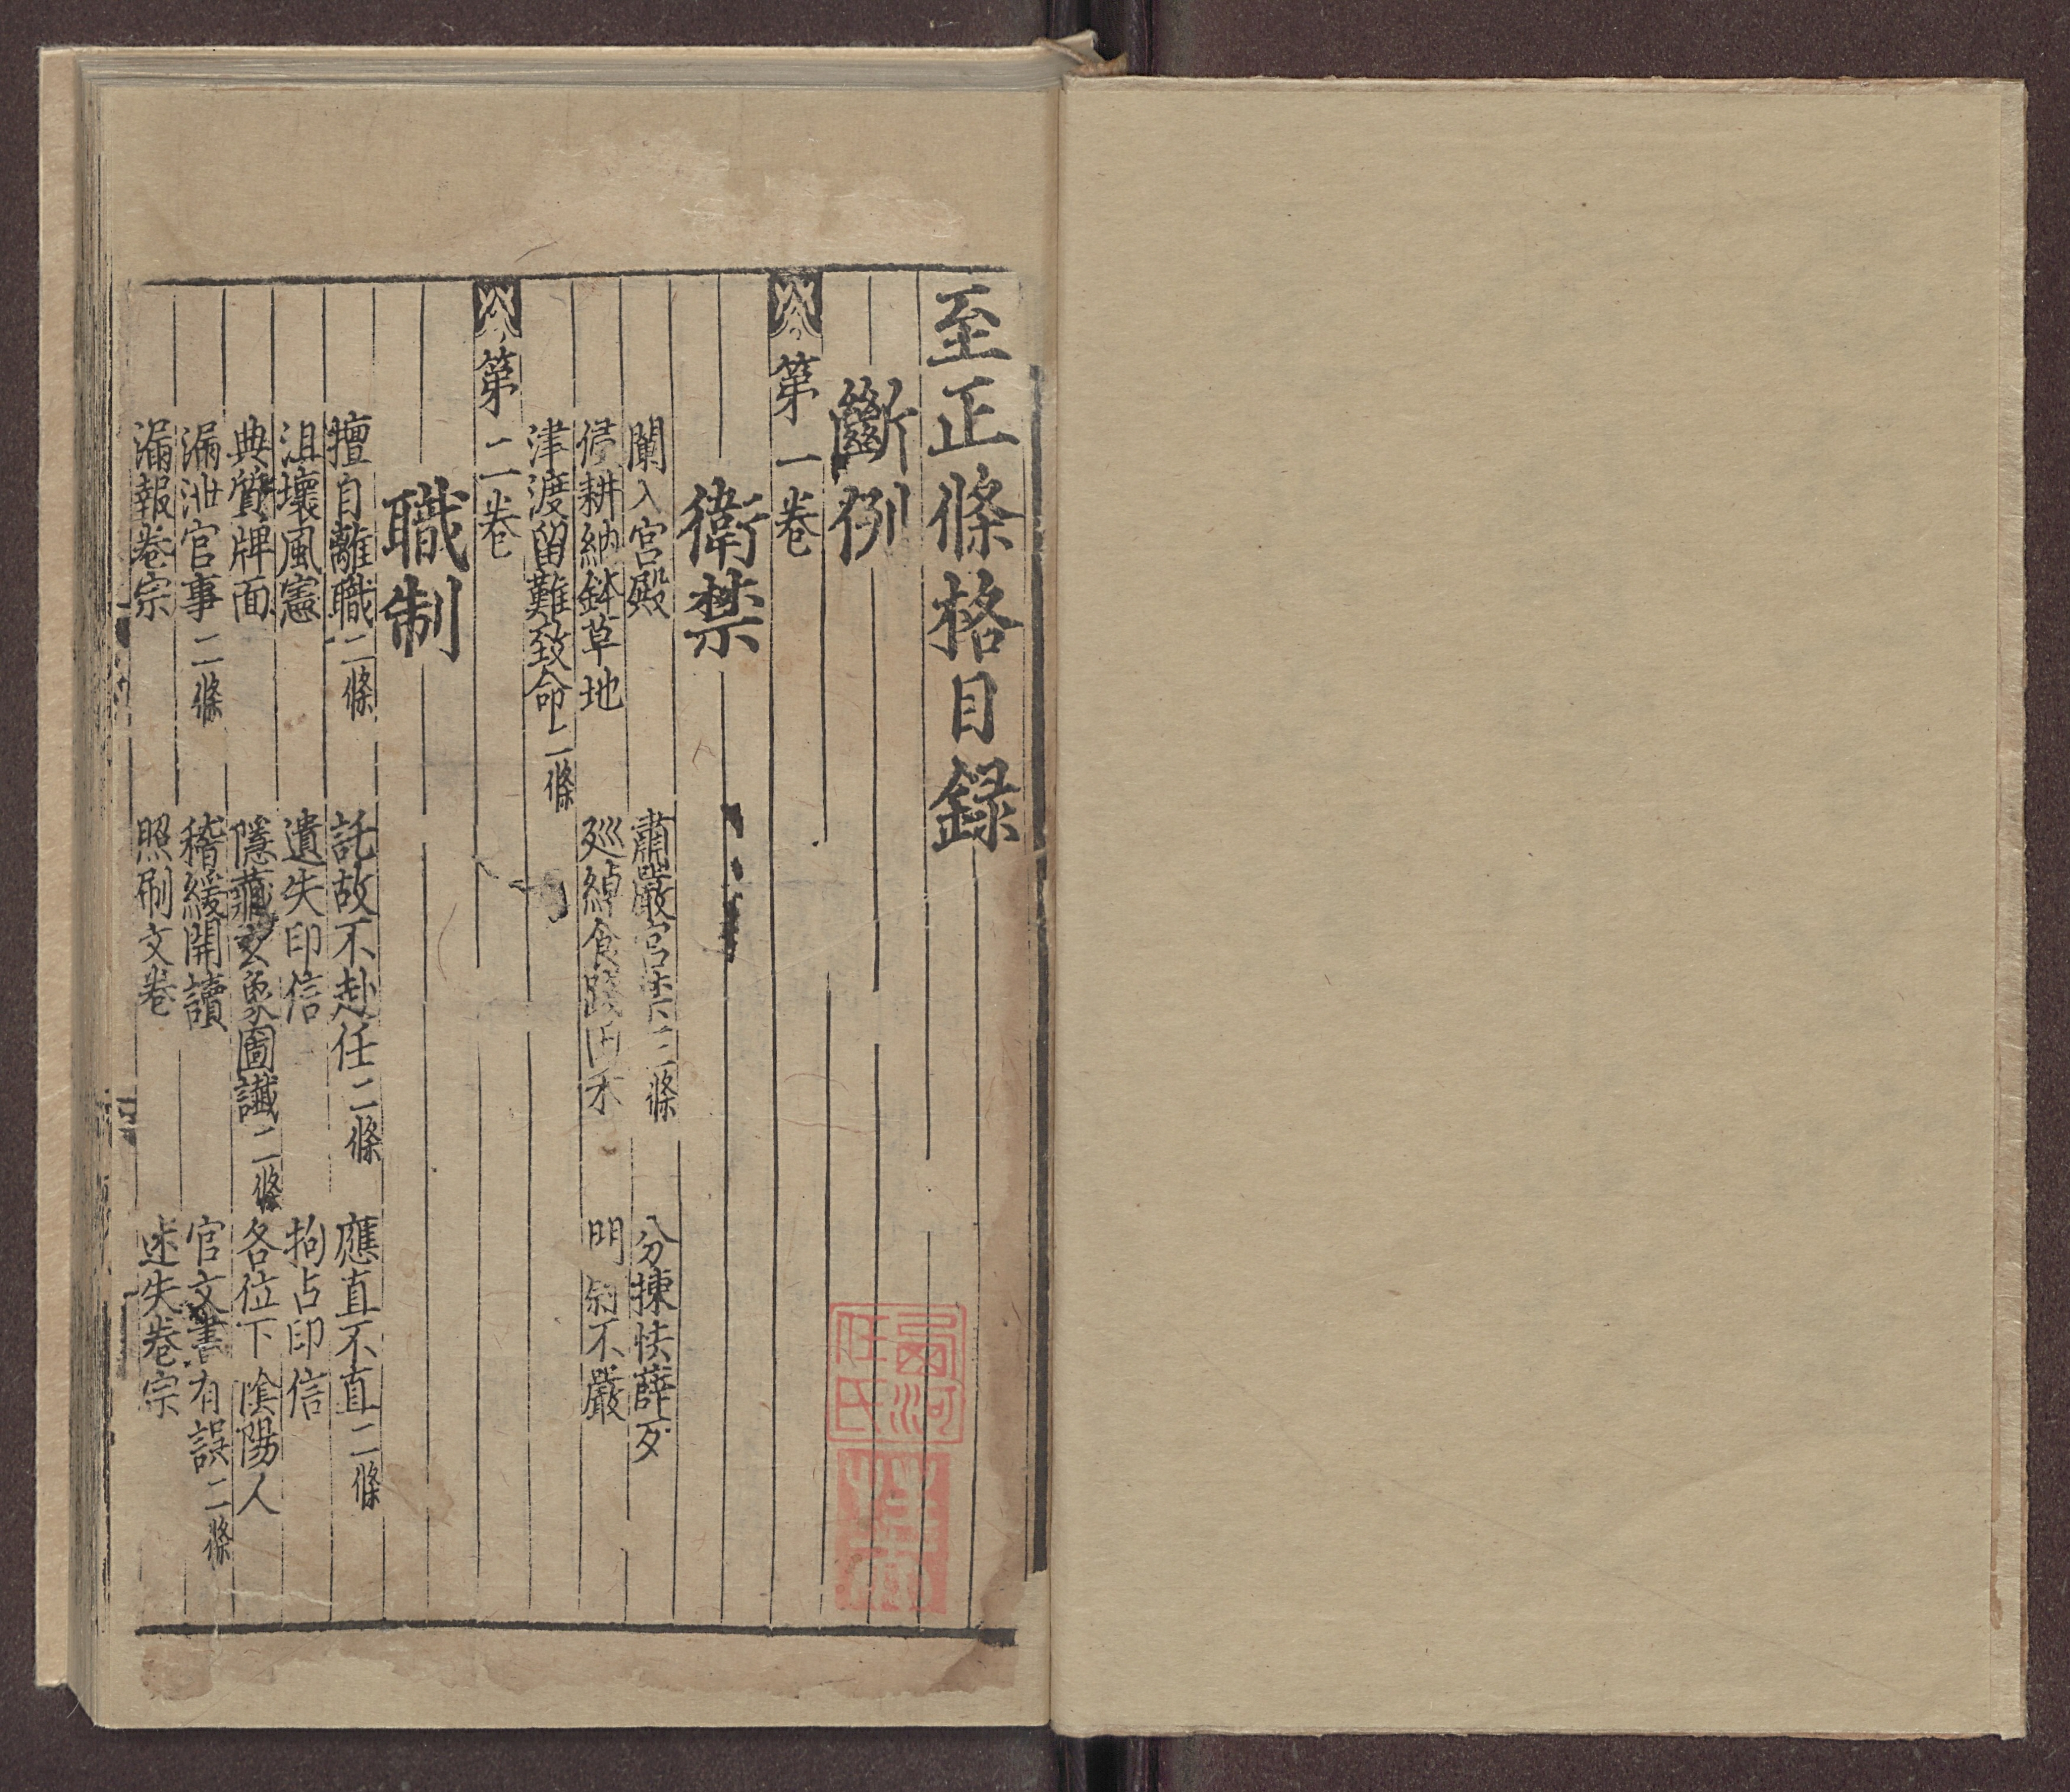 至正條格目録
斷例
第一卷
衛禁
闌入宮殿 肅嚴宮禁二條 分揀怯薛歹
侵耕納鉢草地 廵綽食踐田禾 門禁不嚴
津渡留難致命二條
第二卷
職制
擅自離職二條 託故不赴任二條 應直不直二條
沮壞風憲 遺失印信 拘占印信
典質牌面 隱藏玄象圖讖二條 各位下陰陽人
漏泄官事二條 稽緩開讀 官文書有誤二條
漏報卷宗 照刷文卷 迷失卷宗
西河任氏